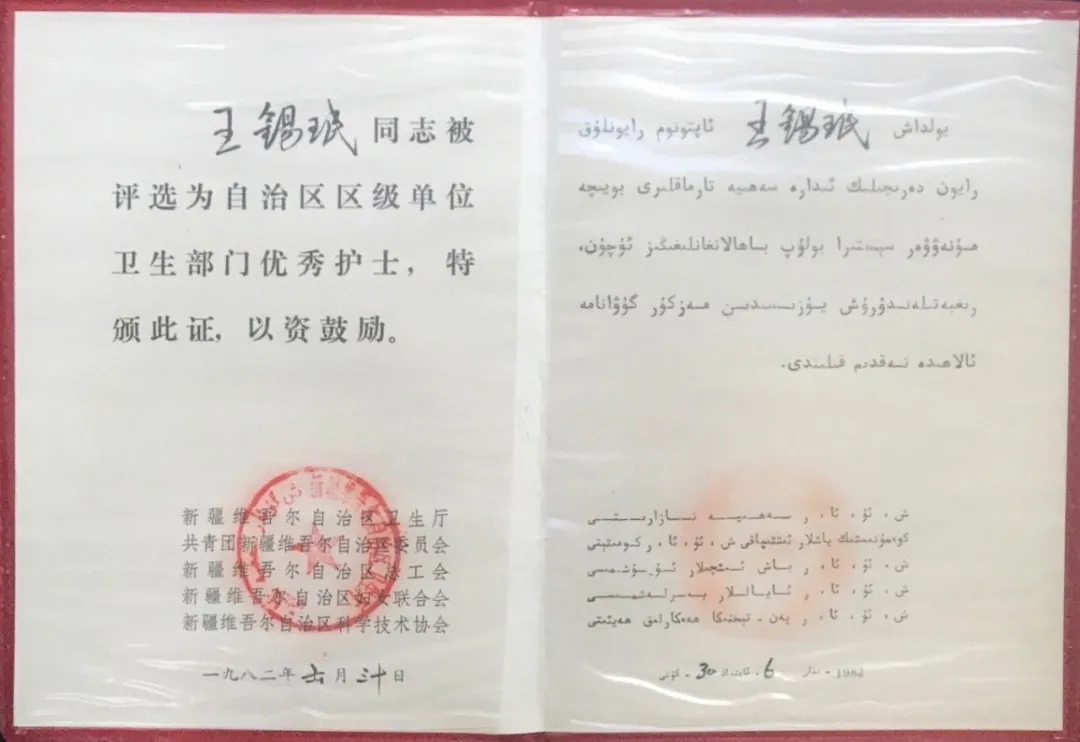 王锡珉 同志被
评选为自治区区级单位
卫生部门优秀护士，特
颁此证，以资鼓励。
新疆维吾尔自治区卫生厅
共青团新疆维吾尔自治区委员会
新疆维吾尔自治区总工会
新疆维吾尔自治区妇女联合会
新疆维吾尔自治区科学技术协会
一九八二年六月三十日
يولداش 王锡珉 ئاپتونوم رايونلۇق
رايون دەرىجىلىك ئىدارە سەھىيە تارماقلىرى بويىچە
مۇنەۋۋەر سېسترا بولۇپ باھالانغانلىغىڭىز ئۈچۈن،
رىغبەتلەندۈرۈش يۈزىسىدىن مەزكۇر گۇۋانامە
ئالاھىدە تەقدىم قىلىندى.
ش ، ئۇ ، ئا ، ر سەھىيە نازارىتى
كوممۇنىستىك ياشلار ئىتتىپاقى ش ، ئۇ ، ئا ، ر كومىتېتى
ش ، ئۇ ، ئا ، ر باش ئىشچىلار ئۇيۇشمىسى
ش ، ئۇ ، ئا ، ر ئاياللار بىرلەشمىسى
ش ، ئۇ ، ئا ، ر پەن - تېخنىكا ھەمكارلىق ھەيئىتى
1982 - يىلى 6 - ئاينىڭ 30 - كۈنى